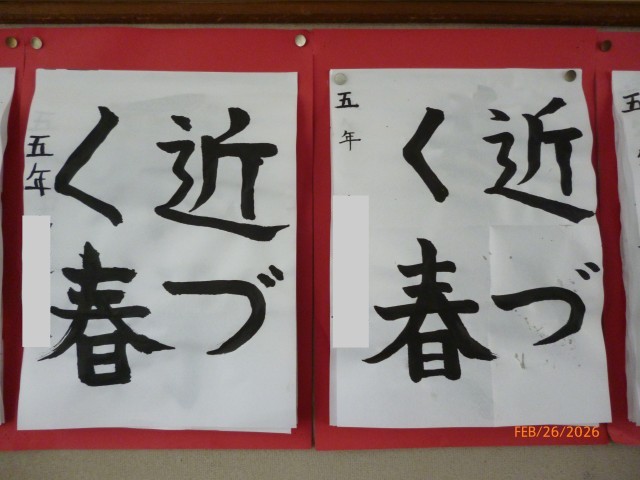 近づ
く春
五年
近づ
く春
五年
五
FEB/26/2026